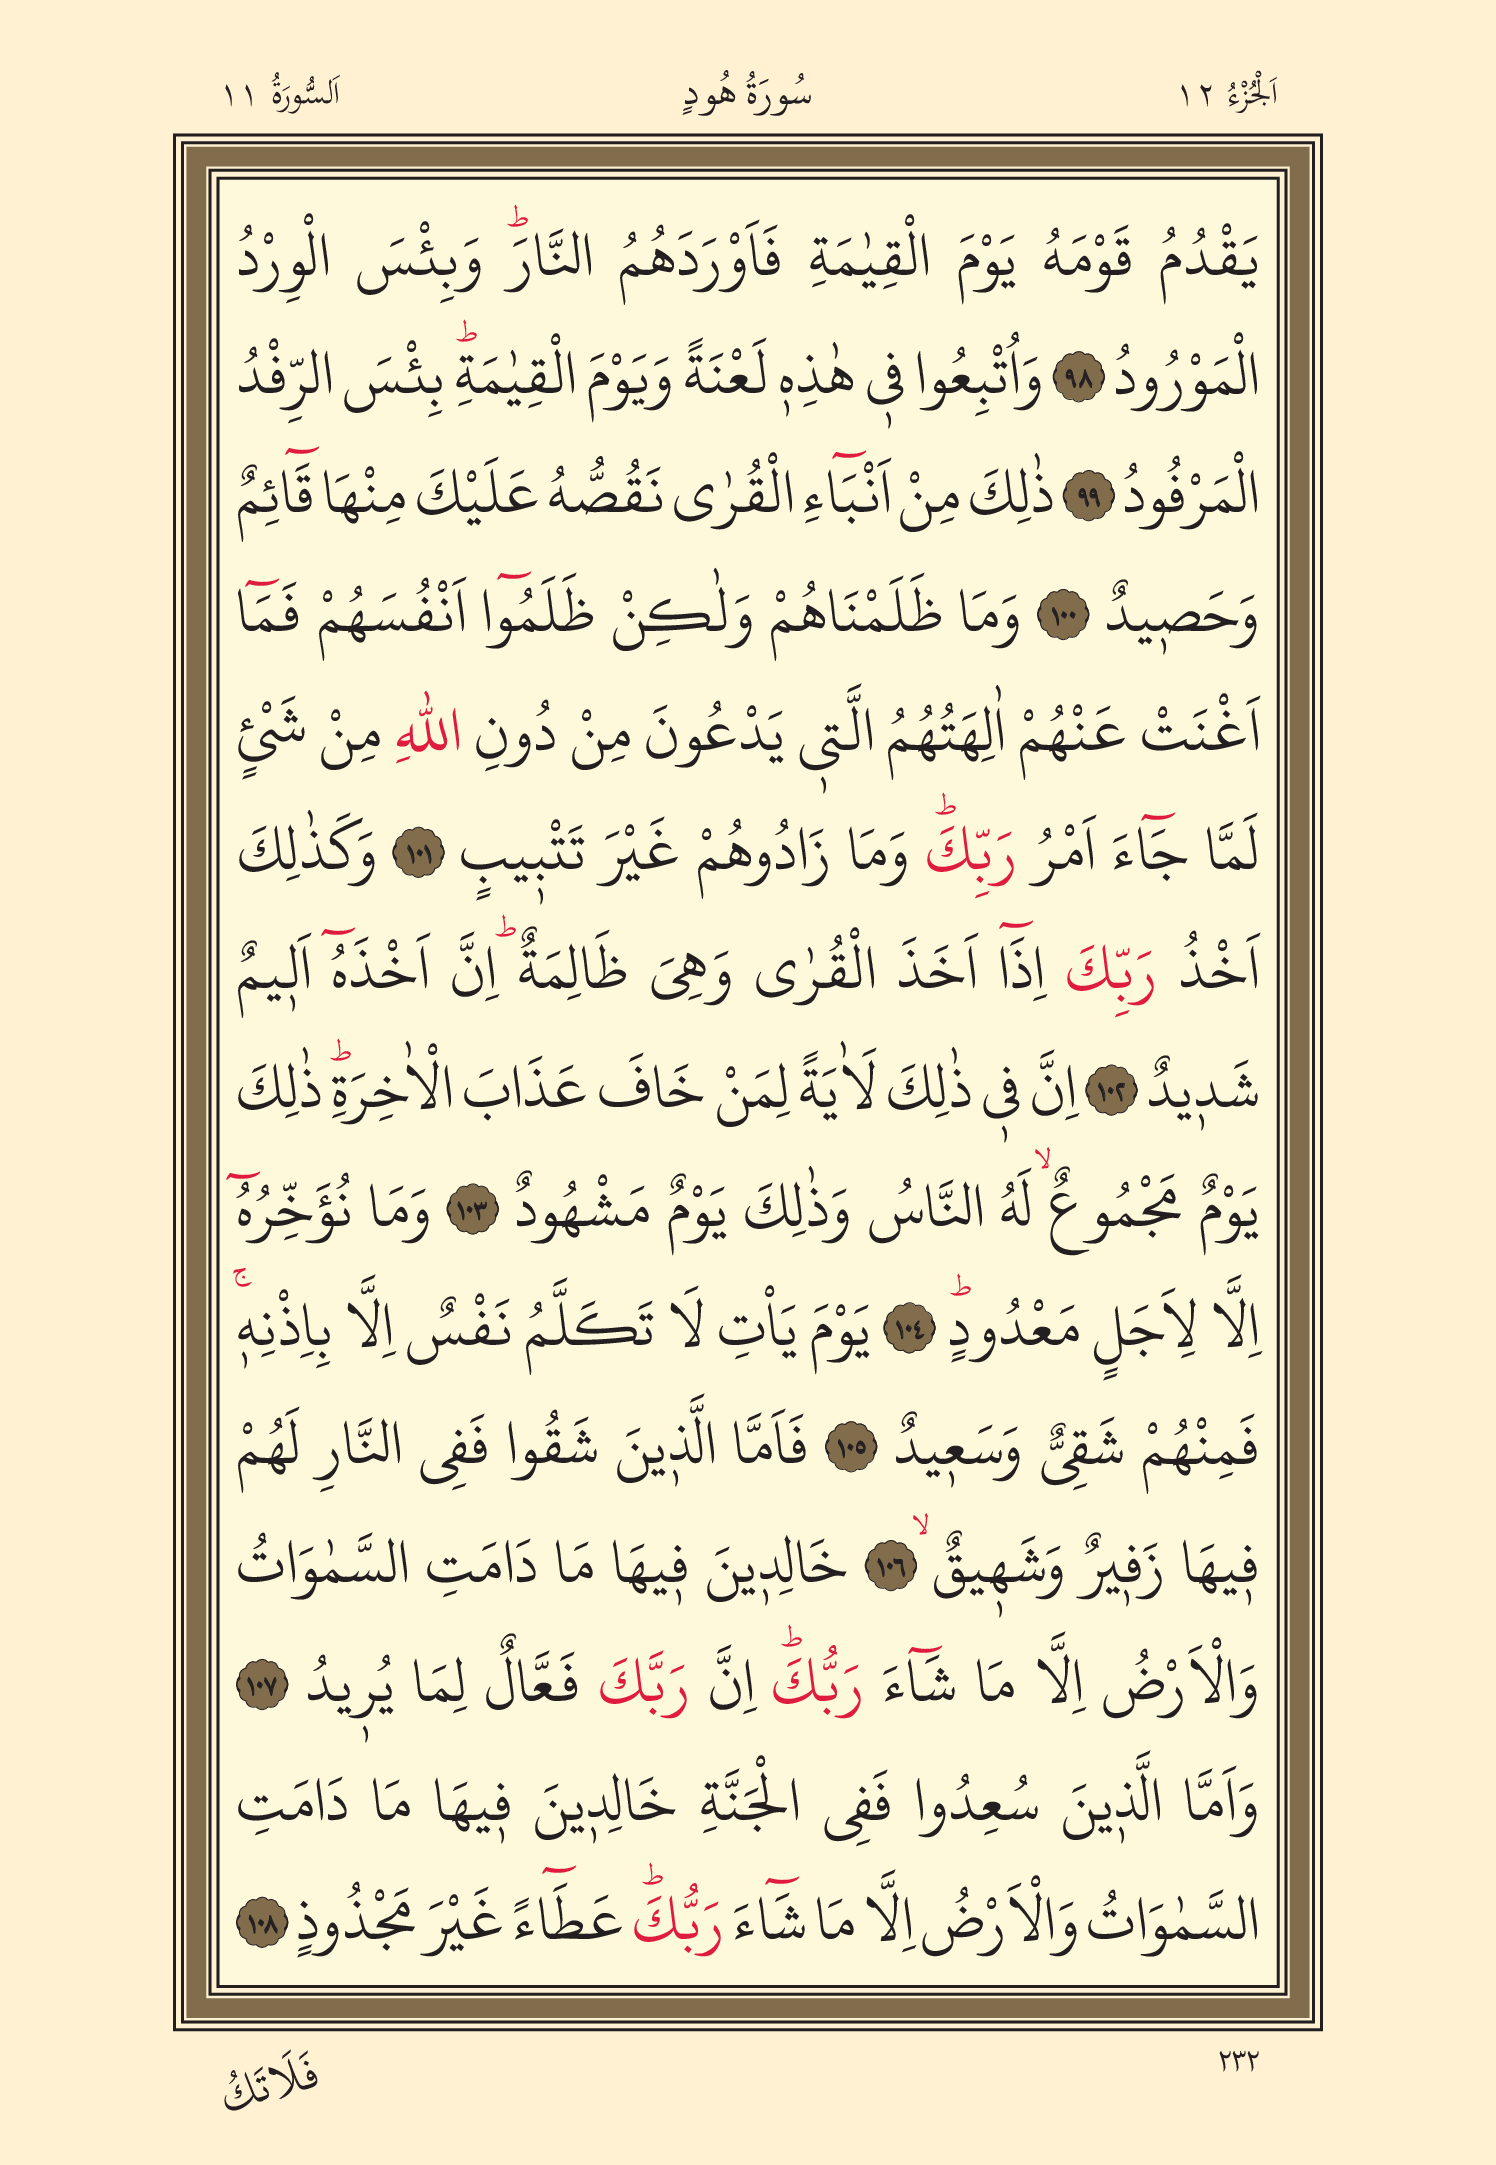 اَلْجُزْءُ ١٢ سُورَةُ هُودٍ اَلسُّورَةُ ١١
يَقْدُمُ قَوْمَهُ يَوْمَ الْقِيٰمَةِ فَاَوْرَدَهُمُ النَّارَۜ وَبِئْسَ الْوِرْدُ
الْمَوْرُودُ ﴿٩٨﴾ وَاُتْبِعُوا فٖي هٰذِهٖ لَعْنَةً وَيَوْمَ الْقِيٰمَةِؕ بِئْسَ الرِّفْدُ
الْمَرْفُودُ ﴿٩٩﴾ ذٰلِكَ مِنْ اَنْبَٓاءِ الْقُرٰى نَقُصُّهُ عَلَيْكَ مِنْهَا قَٓائِمٌ
وَحَصٖيدٌ ﴿١٠٠﴾ وَمَا ظَلَمْنَاهُمْ وَلٰكِنْ ظَلَمُٓوا اَنْفُسَهُمْ فَمَٓا
اَغْنَتْ عَنْهُمْ اٰلِهَتُهُمُ الَّتٖي يَدْعُونَ مِنْ دُونِ اللّٰهِ مِنْ شَيْئٍ
لَمَّا جَٓاءَ اَمْرُ رَبِّكَؕ وَمَا زَادُوهُمْ غَيْرَ تَتْبٖيبٍ ﴿١٠١﴾ وَكَذٰلِكَ
اَخْذُ رَبِّكَ اِذَٓا اَخَذَ الْقُرٰى وَهِيَ ظَالِمَةٌؕ اِنَّ اَخْذَهُٓ اَلٖيمٌ
شَدٖيدٌ ﴿١٠٢﴾ اِنَّ فٖي ذٰلِكَ لَاٰيَةً لِمَنْ خَافَ عَذَابَ الْاٰخِرَةِؕ ذٰلِكَ
يَوْمٌ مَجْمُوعٌۙ لَهُ النَّاسُ وَذٰلِكَ يَوْمٌ مَشْهُودٌ ﴿١٠٣﴾ وَمَا نُؤَخِّرُهُٓ
اِلَّا لِاَجَلٍ مَعْدُودٍؕ ﴿١٠٤﴾ يَوْمَ يَاْتِ لَا تَكَلَّمُ نَفْسٌ اِلَّا بِاِذْنِهٖۚ
فَمِنْهُمْ شَقِيٌّ وَسَعٖيدٌ ﴿١٠٥﴾ فَاَمَّا الَّذٖينَ شَقُوا فَفِي النَّارِ لَهُمْ
فٖيهَا زَفٖيرٌ وَشَهٖيقٌۙ ﴿١٠٦﴾ خَالِدٖينَ فٖيهَا مَا دَامَتِ السَّمٰوَاتُ
وَالْاَرْضُ اِلَّا مَا شَٓاءَ رَبُّكَؕ اِنَّ رَبَّكَ فَعَّالٌ لِمَا يُرٖيدُ ﴿١٠٧﴾
وَاَمَّا الَّذٖينَ سُعِدُوا فَفِي الْجَنَّةِ خَالِدٖينَ فٖيهَا مَا دَامَتِ
السَّمٰوَاتُ وَالْاَرْضُ اِلَّا مَا شَٓاءَ رَبُّكَؕ عَطَٓاءً غَيْرَ مَجْذُوذٍ ﴿١٠٨﴾
٢٣٢ فَلَا تَكُ